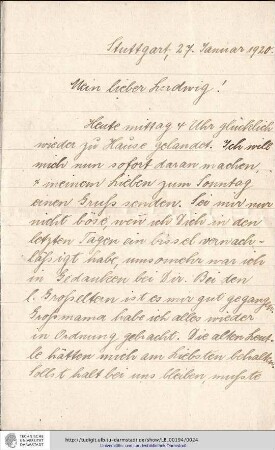 Stuttgart, 27. Januar 1920.
Mein lieber Ludwig!
Heute mittag 4 Uhr glücklich
wieder zu Hause gelandet. Ich will
mich nun sofort daran machen,
& meinem Lieben zum Sonntag
einen Gruß senden. Sei mir nur
nicht böse, wenn ich Dich in den
letzten Tagen ein bissel vernach-
läßigt habe, umsomehr war ich
in Gedanken bei Dir. Bei den
l. Großeltern ist es mir gut gegangen
Großmama habe ich alles wieder
in Ordnung gebracht. Die alten Leut-
le hätten mich am liebsten behalten
sollst halt bei uns bleiben, mußte
TECHNISCHE
UNIVERSITÄT
DARMSTADT
http://tudigit.ulb.tu-darmstadt.de/show/LB.00194/0024
Universitäts- und Landesbibliothek Darmstadt